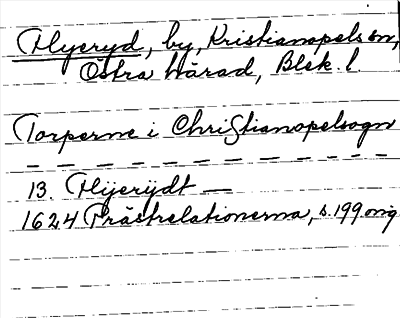 Flyeryd, by, Kristianopels sn,
Östra härad, Blek. l
Torperne i Christianopelsogn
13. Flÿerÿdt —
1624 Prästrelationerna, s. 199 orig